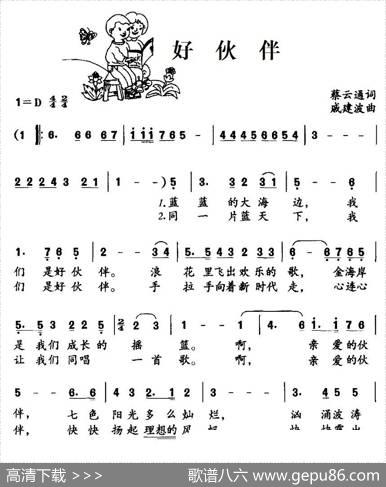 好伙伴
1=D 4/4 2/4
蔡云通词
戚建波曲
(1 ‖: 6. 66 67 | iii765 - | 4444566654 | 3 - - -
222243 221 | 1 - -) 5 | 3. 32 31 | 5 - - 6
1.蓝蓝的大海边,我
2.同一片蓝天下,我
1. 765 6 | 2 - - 34 | 5. 543 223 | 6 - 6765
们是好伙伴。浪花里飞出欢乐的歌,金海岸
们是好伙伴。手拉手向着新时代走,心连心
5. 53 225 | 2/4 23 | 1 - - 1 | 4. 6 i. i76
是我们成长的摇篮。啊,亲爱的伙
让我们同唱一首歌。啊,亲爱的伙
5 - - 6.6 | 4443 2.12 | 3 - - 3 | 34566
伴,七色阳光多么灿烂,汹涌波涛
伴,快快扬起理想的风
高清下载 >>>
歌谱八六 www.gepu86.com